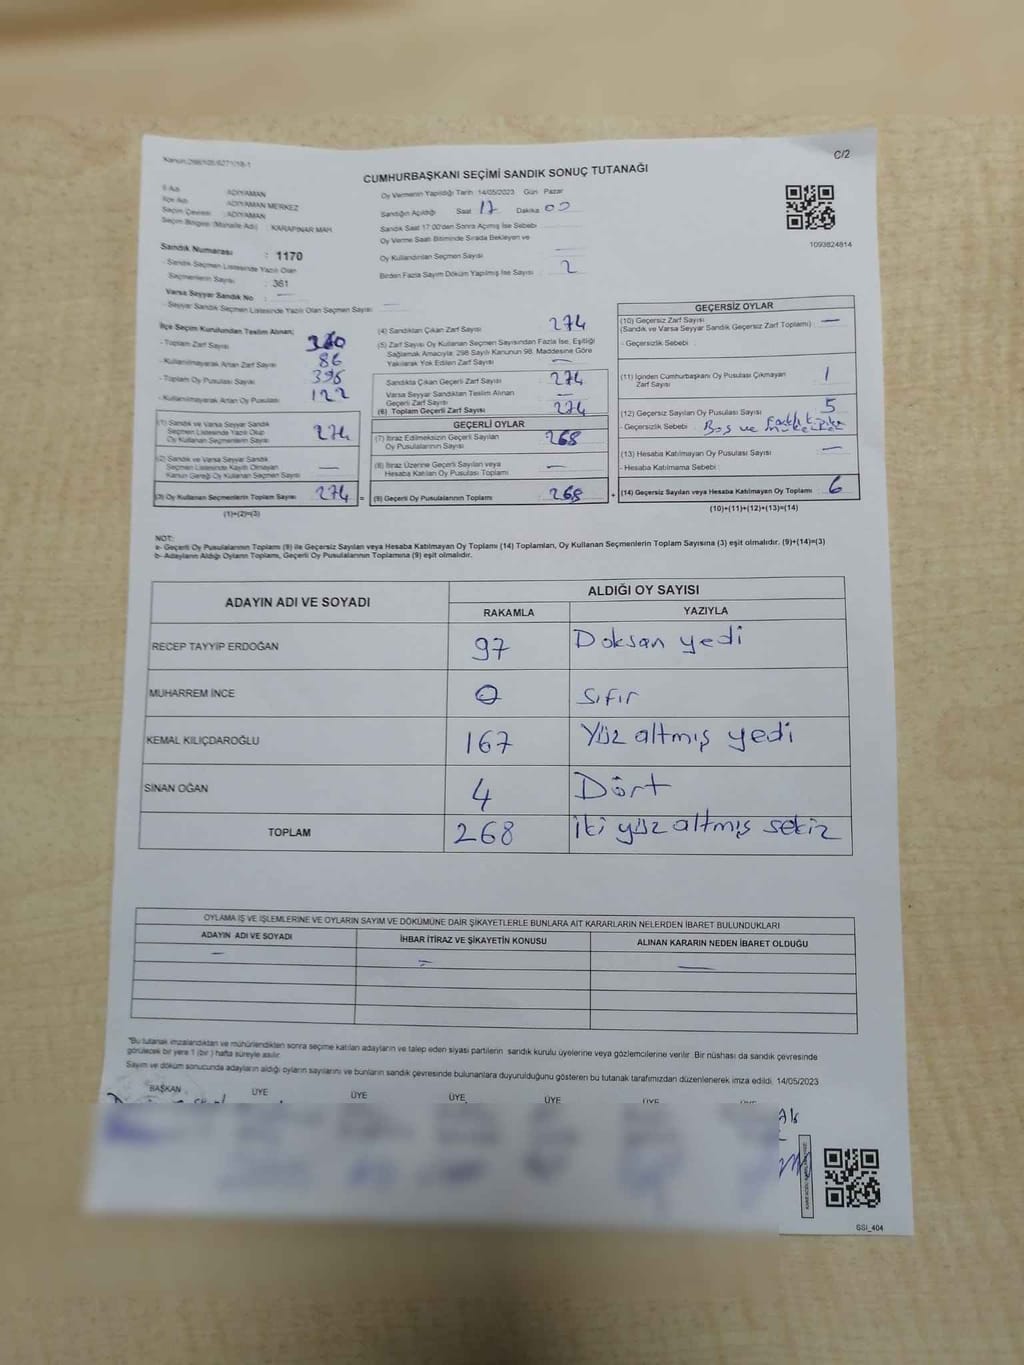 Kanun:298/105/6271/18-1
C/2
CUMHURBAŞKANI SEÇİMİ SANDIK SONUÇ TUTANAĞI
İl Adı : ADIYAMAN
İlçe Adı : ADIYAMAN MERKEZ
Seçim Çevresi : ADIYAMAN
Seçim Bölgesi (Mahalle Adı) : KARAPINAR MAH.
Sandık Numarası : 1170
- Sandık Seçmen Listesinde Yazılı Olan
Seçmenlerin Sayısı : 361
Varsa Seyyar Sandık No : —
- Seyyar Sandık Seçmen Listesinde Yazılı Olan Seçmen Sayısı : —
Oy Vermenin Yapıldığı Tarih 14/05/2023 Gün Pazar
Sandığın Açıldığı Saat 17 Dakika 00
Sandık Saat 17:00'den Sonra Açılmış İse Sebebi :
Oy Verme Saati Bitiminde Sırada Bekleyen ve
Oy Kullandırılan Seçmen Sayısı : —
Birden Fazla Sayım Döküm Yapılmış İse Sayısı : 2
1093824814
İlçe Seçim Kurulundan Teslim Alınan;
- Toplam Zarf Sayısı : 360
- Kullanılmayarak Artan Zarf Sayısı : 86
- Toplam Oy Pusulası Sayısı : 396
- Kullanılmayarak Artan Oy Pusulası : 122
(1) Sandık ve Varsa Seyyar Sandık
Seçmen Listesinde Yazılı Olup
Oy Kullanan Seçmenlerin Sayısı : 274
(2) Sandık ve Varsa Seyyar Sandık
Seçmen Listesinde Kayıtlı Olmayan
Kanun Gereği Oy Kullanan Seçmen Sayısı : —
(3) Oy Kullanan Seçmenlerin Toplam Sayısı : 274 =
(1)+(2)=(3)
(4) Sandıktan Çıkan Zarf Sayısı : 274
(5) Zarf Sayısı Oy Kullanan Seçmen Sayısından Fazla İse, Eşitliği
Sağlamak Amacıyla; 298 Sayılı Kanunun 98. Maddesine Göre
Yakılarak Yok Edilen Zarf Sayısı : —
Sandıkta Çıkan Geçerli Zarf Sayısı : 274
Varsa Seyyar Sandıktan Teslim Alınan
Geçerli Zarf Sayısı : —
(6) Toplam Geçerli Zarf Sayısı : 274
GEÇERLİ OYLAR
(7) İtiraz Edilmeksizin Geçerli Sayılan
Oy Pusulalarının Sayısı : 268
(8) İtiraz Üzerine Geçerli Sayılan veya
Hesaba Katılan Oy Pusulası Toplamı : —
(9) Geçerli Oy Pusulalarının Toplamı : 268 +
GEÇERSİZ OYLAR
(10) Geçersiz Zarf Sayısı : —
(Sandık ve Varsa Seyyar Sandık Geçersiz Zarf Toplamı)
- Geçersizlik Sebebi :
(11) İçinden Cumhurbaşkanı Oy Pusulası Çıkmayan
Zarf Sayısı : 1
(12) Geçersiz Sayılan Oy Pusulası Sayısı : 5
- Geçersizlik Sebebi : Boş ve
(13) Hesaba Katılmayan Oy Pusulası Sayısı : —
- Hesaba Katılmama Sebebi :
(14) Geçersiz Sayılan veya Hesaba Katılmayan Oy Toplamı : 6
(10)+(11)+(12)+(13)=(14)
NOT:
a- Geçerli Oy Pusulalarının Toplamı (9) ile Geçersiz Sayılan veya Hesaba Katılmayan Oy Toplamı (14) Toplamları, Oy Kullanan Seçmenlerin Toplam Sayısına (3) eşit olmalıdır. (9)+(14)=(3)
b- Adayların Aldığı Oyların Toplamı, Geçerli Oy Pusulalarının Toplamına (9) eşit olmalıdır.
ADAYIN ADI VE SOYADI ALDIĞI OY SAYISI
RAKAMLA YAZIYLA
RECEP TAYYİP ERDOĞAN 97 Doksan yedi
MUHARREM İNCE 0 Sıfır
KEMAL KILIÇDAROĞLU 167 Yüz altmış yedi
SİNAN OĞAN 4 Dört
TOPLAM 268 İki yüz altmış sekiz
OYLAMA İŞ VE İŞLEMLERİNE VE OYLARIN SAYIM VE DÖKÜMÜNE DAİR ŞİKAYETLERLE BUNLARA AİT KARARLARIN NELERDEN İBARET BULUNDUKLARI
ADAYIN ADI VE SOYADI İHBAR İTİRAZ VE ŞİKAYETİN KONUSU ALINAN KARARIN NEDEN İBARET OLDUĞU
*Bu tutanak imzalandıktan ve mühürlendikten sonra seçime katılan adayların ve talep eden siyasi partilerin sandık kurulu üyelerine veya gözlemcilerine verilir. Bir nüshası da sandık çevresinde
görülecek bir yere 1 (bir) hafta süreyle asılır.
Sayım ve döküm sonucunda adayların aldığı oyların sayılarını ve bunların sandık çevresinde bulunanlara duyurulduğunu gösteren bu tutanak tarafımızdan düzenlenerek imza edildi. 14/05/2023
BAŞKAN ÜYE ÜYE ÜYE ÜYE ÜYE
SSI_404